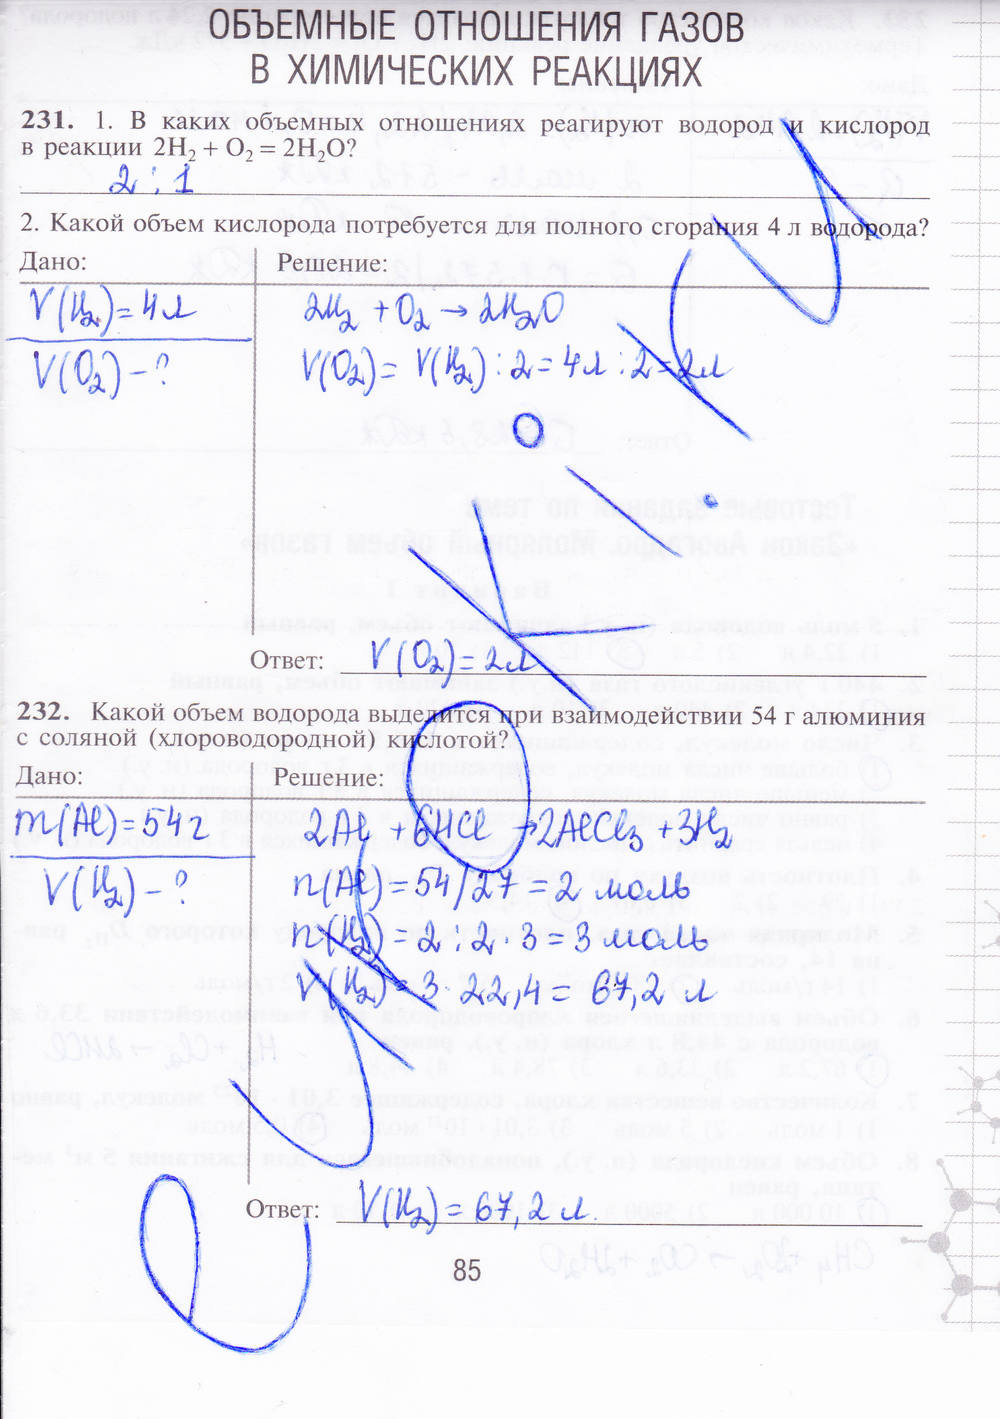 ОБЪЕМНЫЕ ОТНОШЕНИЯ ГАЗОВ
В ХИМИЧЕСКИХ РЕАКЦИЯХ
231. 1. В каких объемных отношениях реагируют водород и кислород
в реакции 2H₂ + O₂ = 2H₂O?
2 : 1
2. Какой объем кислорода потребуется для полного сгорания 4 л водорода?
Дано: Решение:
V(H₂) = 4 л
V(O₂) – ?
2H₂ + O₂ → 2H₂O
V(O₂) = V(H₂) : 2 = 4 л : 2 = 2 л
Ответ: V(O₂) = 2 л
232. Какой объем водорода выделится при взаимодействии 54 г алюминия
с соляной (хлороводородной) кислотой?
Дано: Решение:
m(Al) = 54 г
V(H₂) – ?
2Al + 6HCl → 2AlCl₃ + 3H₂
n(Al) = 54/27 = 2 моль
n(H₂) = 2 : 2 · 3 = 3 моль
V(H₂) = 3 · 22,4 = 67,2 л
Ответ: V(H₂) = 67,2 л.
85